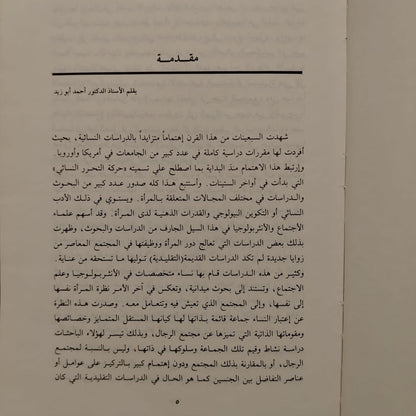 مقدمة
بقلم الأستاذ الدكتور أحمد أبو زيد
شهدت السبعينات من هذا القرن إهتماماً متزايداً بالدراسات النسائية، بحيث
أفردت لها مقررات دراسية كاملة في عدد كبير من الجامعات في أمريكا وأوروبا.
وإرتبط هذا الاهتمام منذ البداية بما اصطلح علي تسميته «حركة التحرر النسائي»
التي بدأت في أواخر الستينات. وأستتبع هذا كله صدور عدد كبير من البحوث
والدراسات في مختلف المجالات المتعلقة بالمرأة. ويستوي في ذلك الأدب
النسائي أو التكوين البيولوجي والقدرات الذهنية لدى المرأة. وقد أسهم علماء
الأجتماع والأنثربولوجيا في هذا السيل الجارف من الدراسات والبحوث، وظهرت
بذلك بعض الدراسات التي تعالج دور المرأة ووظيفتها في المجتمع المعاصر من
زوايا جديدة لم تكد الدراسات القديمة(التقليدية) توليها ما تستحقه من عناية.
وكثير من هذه الدراسات قام بها نساء متخصصات في الأنثربولوجيا وعلم
الاجتماع، وتستند إلى بحوث ميدانية، وتعكس في آخر الأمر نظرة المرأة نفسها
إلى نفسها، وإلى المجتمع الذي تعيش فيه وتتعامل معه. وصدرت هذه النظرة
عن إعتبار النساء جماعة قائمة بذاتها لها كيانها المستقل المتمايز وخصائصها
ومقوماتها الذاتية التي تميزها عن مجتمع الرجال، وبذلك تيسر لهؤلاء الباحثات
دراسة نشاط وقيم تلك الجماعة وسلوكها في ذاتها، وليس بالنسبة لمجتمع
الرجال، أو بالمقارنة بذلك المجتمع ودون إهتمام كبير بالتركيز على عوامل أو
عناصر التفاضل بين الجنسين كما هو الحال في الدراسات التقليدية التي كان
٥